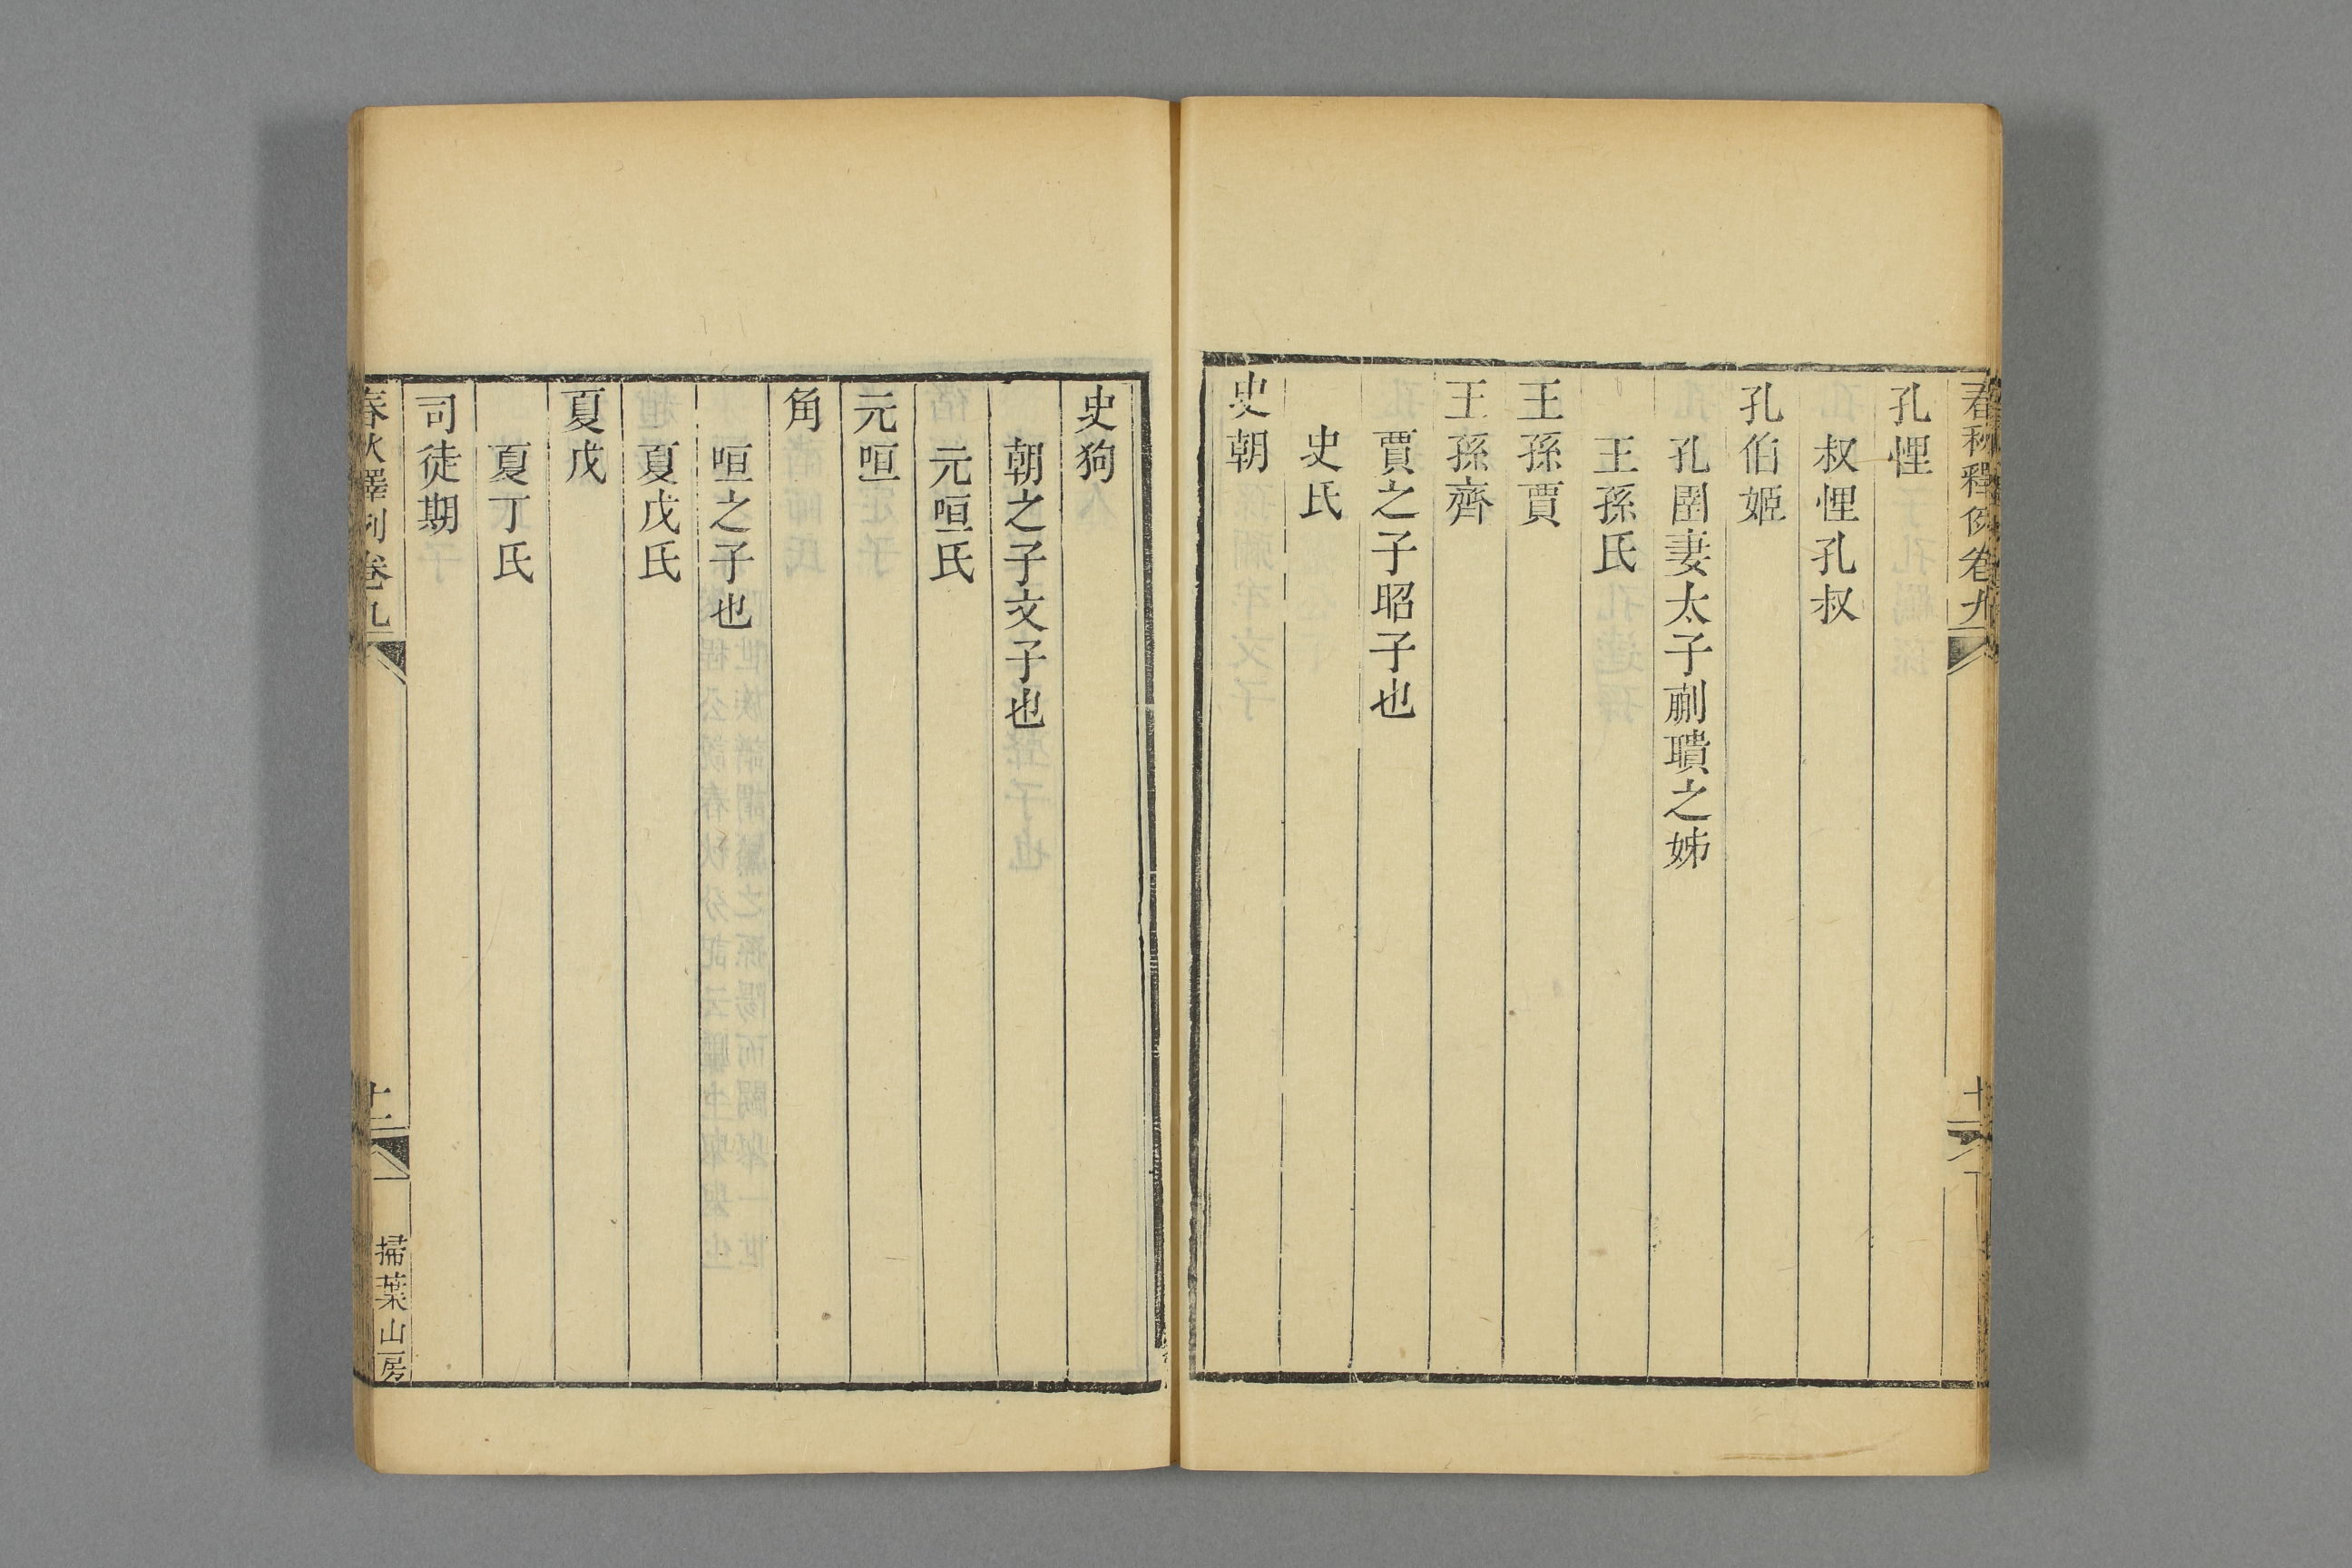 春秋釋例卷九
十
孔悝
叔悝孔叔
孔伯姬
孔圉妻太子蒯聵之姊
王孫氏
王孫賈
王孫齊
賈之子昭子也
史氏
史朝
史狗
朝之子文子也
元咺氏
元咺
角
咺之子也
夏戊氏
夏戊
夏丁氏
司徒期
春秋釋例卷九
十一
掃葉山房